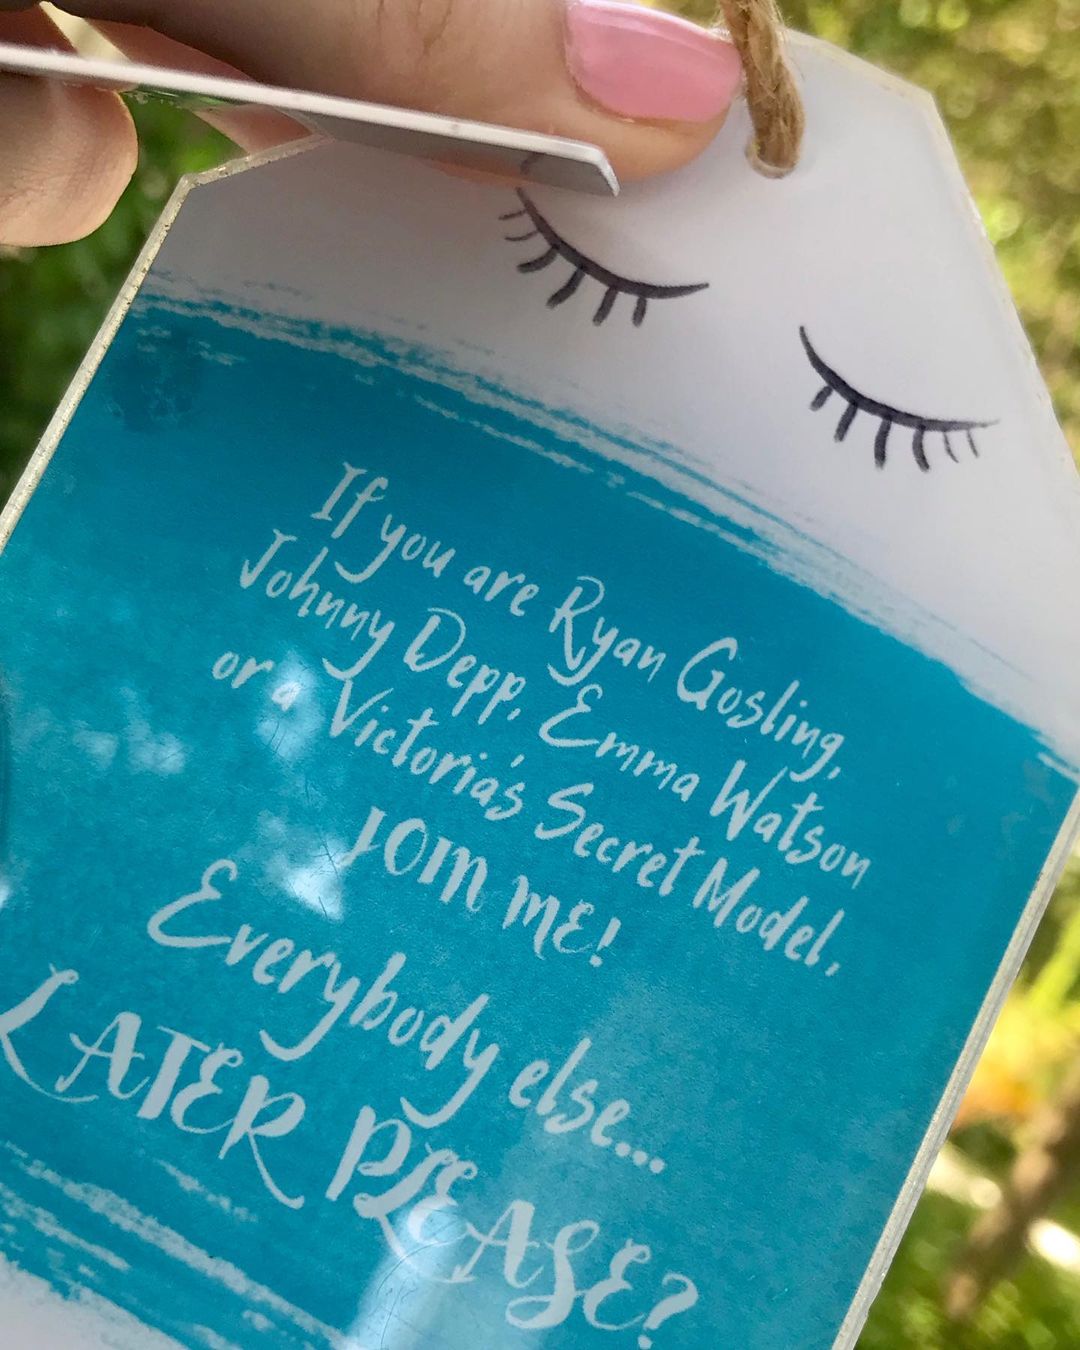 If you are Ryan Gosling,
Johnny Depp, Emma Watson
or a Victoria's Secret Model,
JOIN ME!
Everybody else...
LATER PLEASE?